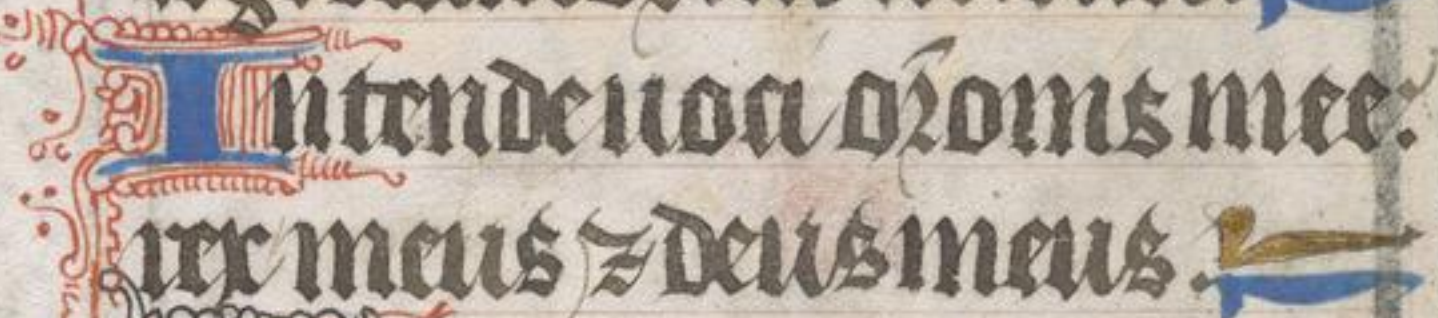 Intende uoci oronis mee:
rex meus ⁊ deus meus.